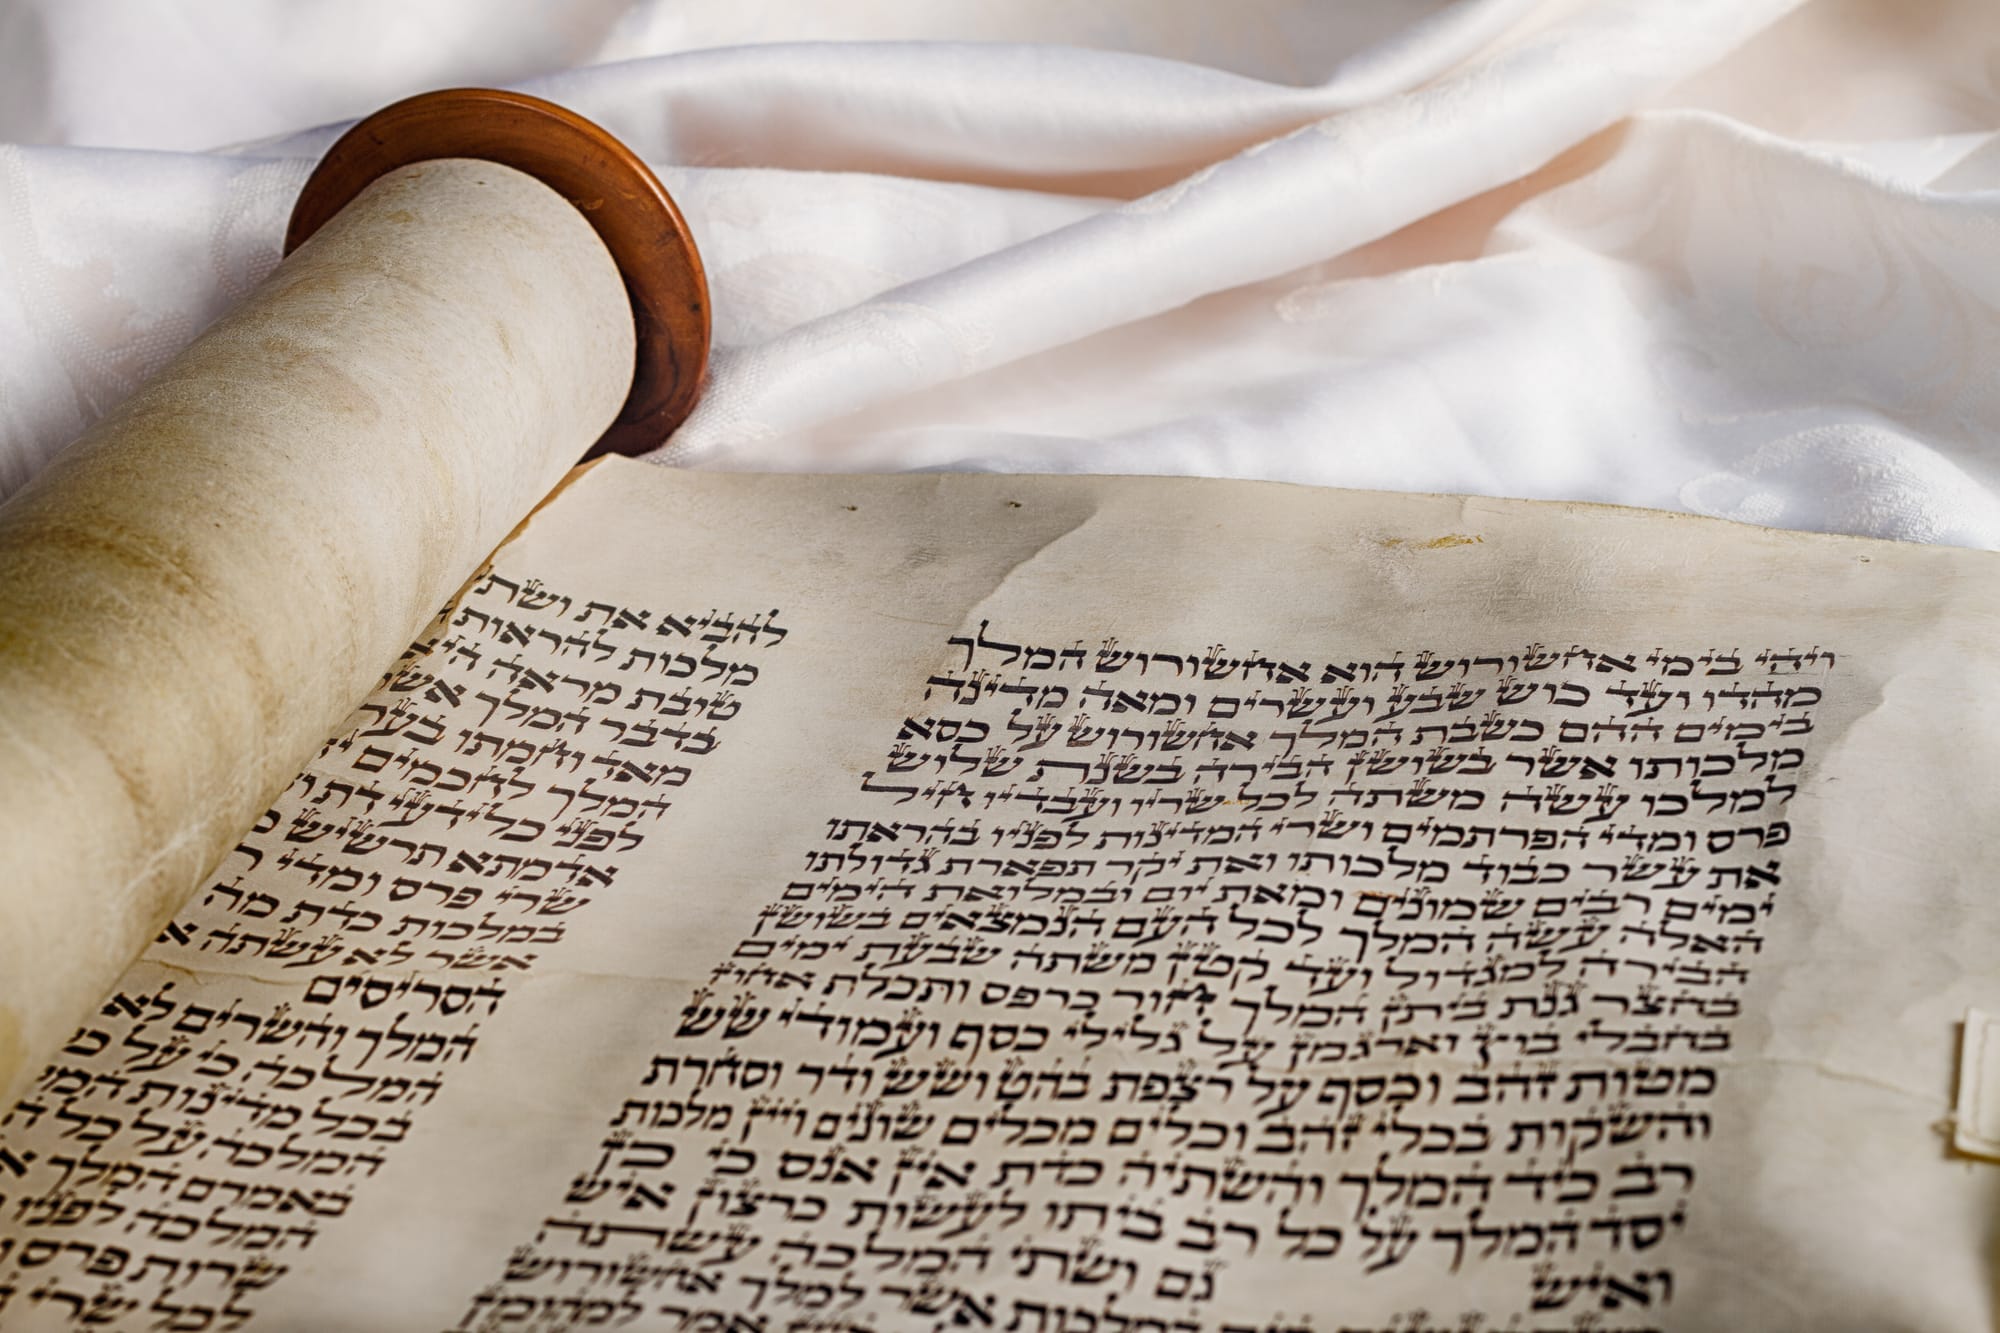 ויהי בימי אחשורוש הוא אחשורוש המלך
מהדו ועד כוש שבע ועשרים ומאה מדינה
בימים ההם כשבת המלך אחשורוש על כסא
מלכותו אשר בשושן הבירה בשנת שלוש
למלכו עשה משתה לכל שריו ועבדיו חיל
פרס ומדי הפרתמים ושרי המדינות לפניו בהראתו
את עשר כבוד מלכותו ואת יקר תפארת גדולתו
ימים רבים שמונים ומאת יום ובמלואת הימים
האלה עשה המלך לכל העם הנמצאים בשושן
הבירה למגדול ועד קטן משתה שבעת ימים
בחצר גנת ביתן המלך חור כרפס ותכלת אחוז
בחבלי בוץ וארגמן על גלילי כסף ועמודי שש
מטות זהב וכסף על רצפת בהט ושש ודר וסחרת
והשקות בכלי זהב וכלים מכלים שונים ויין מלכות
רב כיד המלך והשתיה כדת אין אנס כי כן
יסד המלך על כל רב ביתו לעשות כרצון איש
ואיש גם ושתי המלכה עשתה
אשר למלך אחשורוש
אמר למהומן
להביא את ושתי
מלכות להראות
טובת מראה היא
בדבר המלך אשר
מאד וחמתו בערה
המלך לחכמים
לפני כל ידעי דת
אדמתא תרשיש
שרי פרס ומדי
במלכות כדת מה
אשר לא עשתה
הסריסים
המלך והשרים לא
המלכה כי על
בכל מדינות
המלכה על כל
באמרם המלך
המלכה לפניו
שרות פרס
לכל שרי